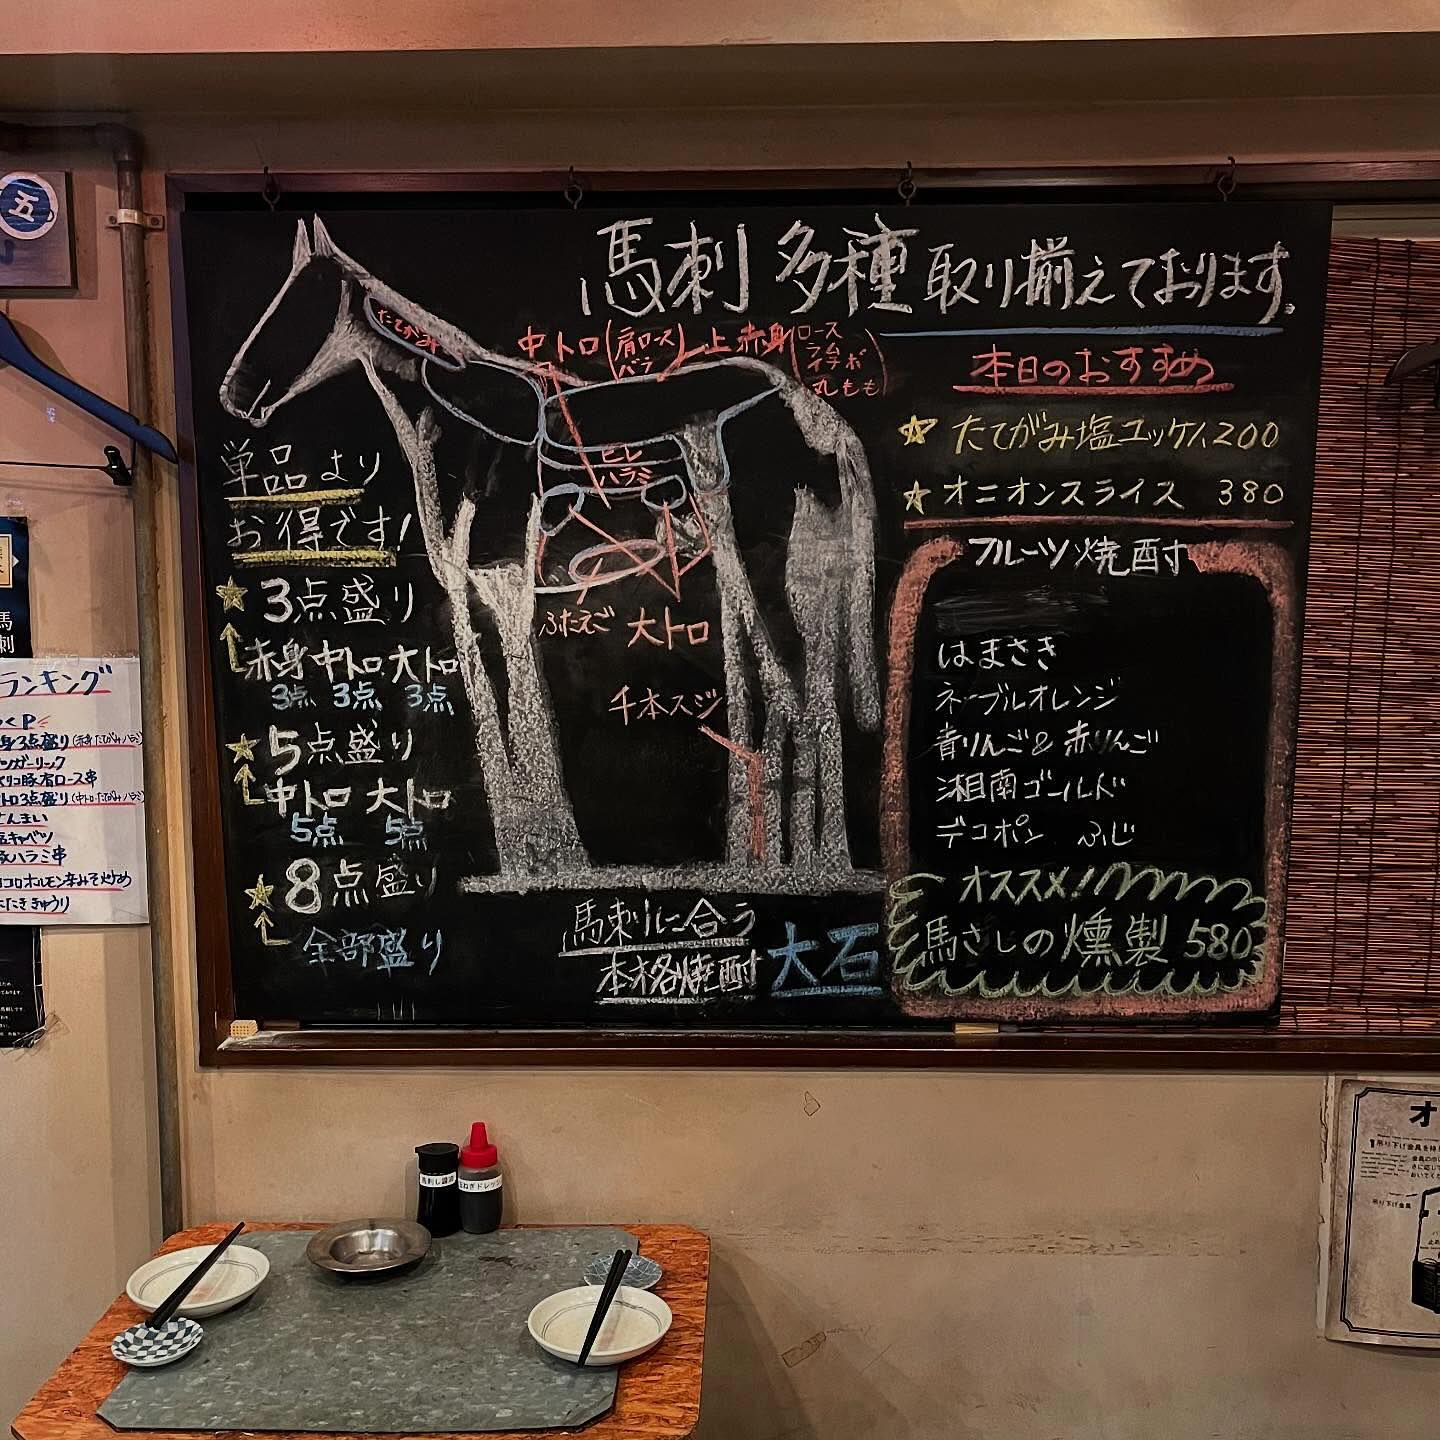 五
馬刺 多種 取り揃えております。
たてがみ
中トロ(肩ロース バラ)
上赤身(ロース ラム イチボ 丸もも)
ヒレ
ハラミ
ふたえご
大トロ
千本スジ
単品より
お得です!
3点盛り
赤身 中トロ 大トロ
3点 3点 3点
5点盛り
中トロ 大トロ
5点 5点
8点盛り
全部盛り
馬刺しに合う
本格焼酎 大石
本日のおすすめ
たてがみ塩ユッケ 1,200
オニオンスライス 380
フルーツ焼酎
はまさき
ネーブルオレンジ
青りんご&赤りんご
湘南ゴールド
デコポン ふじ
オススメ!
馬さしの燻製 580
馬刺
ランキング
身3点盛り(赤身 たてがみ ハラミ)
ンガーリック
リコ豚肩ロース串
トロ3点盛り(中トロ たてがみ ハラミ)
キャベツ
ハラミ串
コロホルモン辛みそ炒め
たたききゅうり
馬刺し醤油
ねぎドレッシ
オ
吊り下げ金具